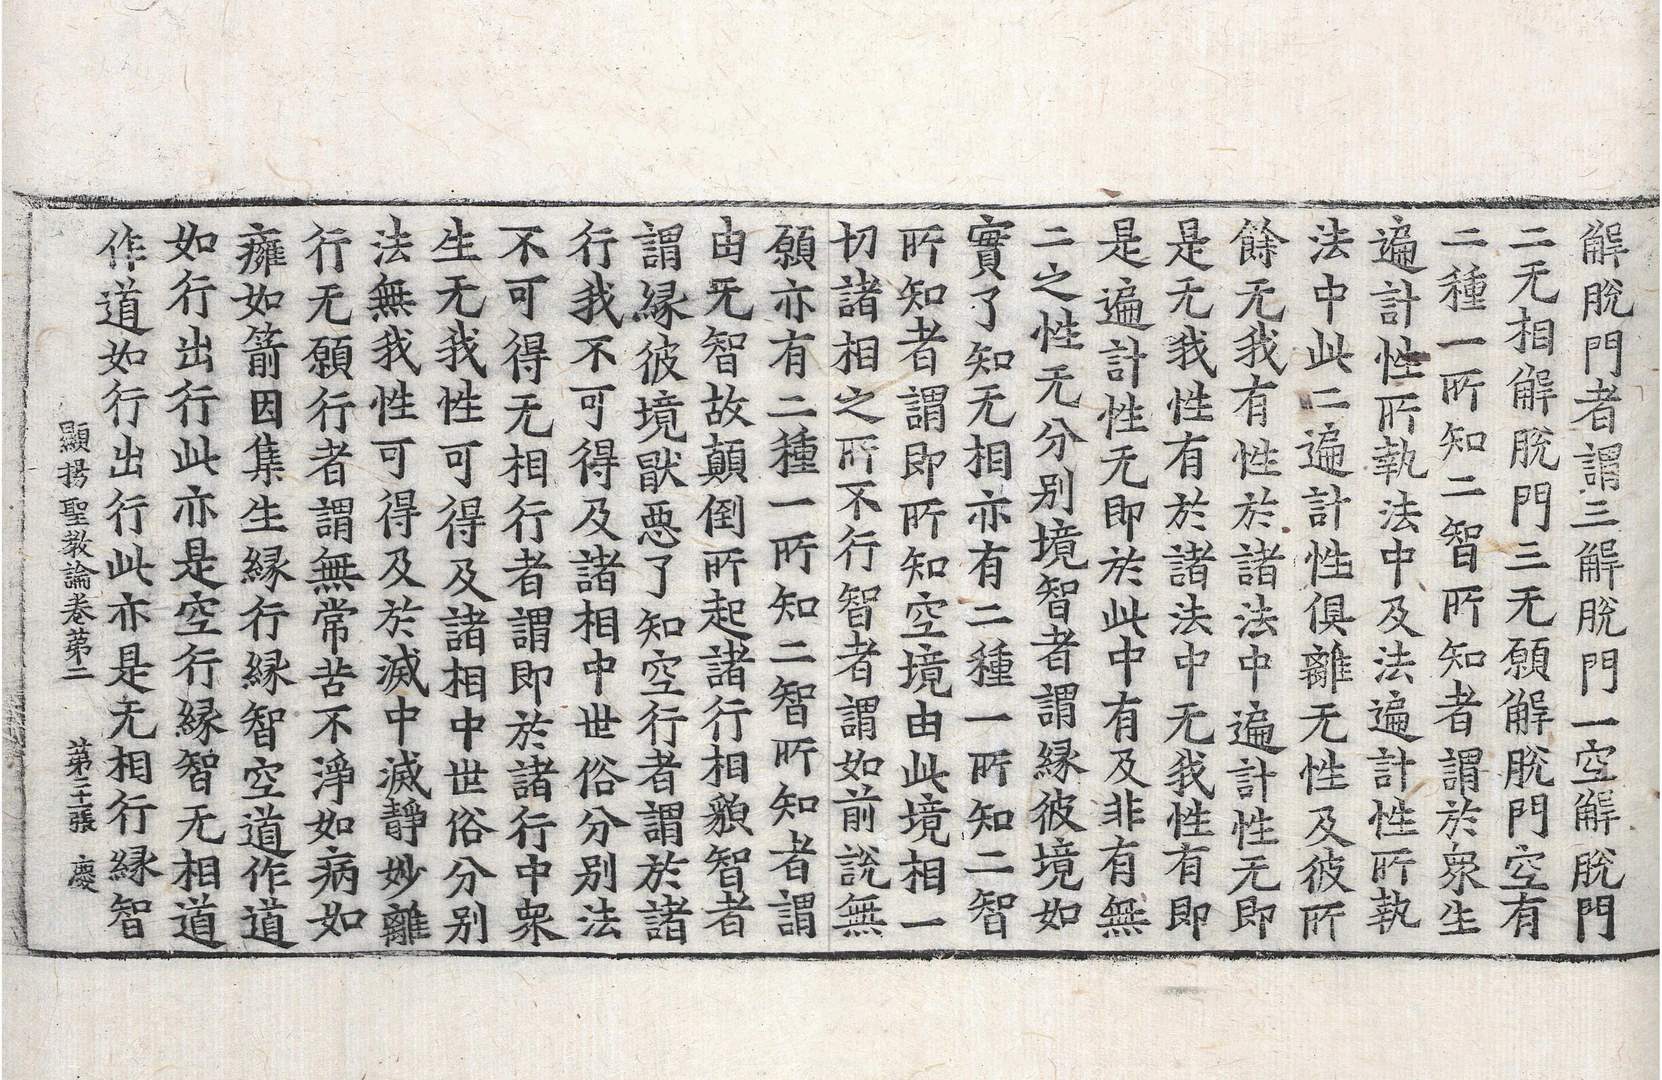 解脫門者謂三解脫門一空解脫門
二无相解脫門三无願解脫門空有
二種一所知二智所知者謂於衆生
遍計性所執法中及法遍計性所執
法中此二遍計性俱離无性及彼所
餘无我有性於諸法中遍計性无即
是无我性有於諸法中无我性有即
是遍計性无即於此中有及非有無
二之性无分別境智者謂緣彼境如
實了知无相亦有二種一所知二智
所知者謂即所知空境由此境相一
切諸相之所不行智者謂如前說無
願亦有二種一所知二智所知者謂
由无智故顛倒所起諸行相貌智者
謂緣彼境猒惡了知空行者謂於諸
行我不可得及諸相中世俗分別法
不可得无相行者謂即於諸行中衆
生无我性可得及諸相中世俗分別
法無我性可得及於滅中滅靜妙離
行无願行者謂無常苦不淨如病如
癰如箭因集生緣行緣智空道作道
如行出行此亦是空行緣智无相道
作道如行出行此亦是无相行緣智
顯揚聖教論卷第二 第二十張 慶